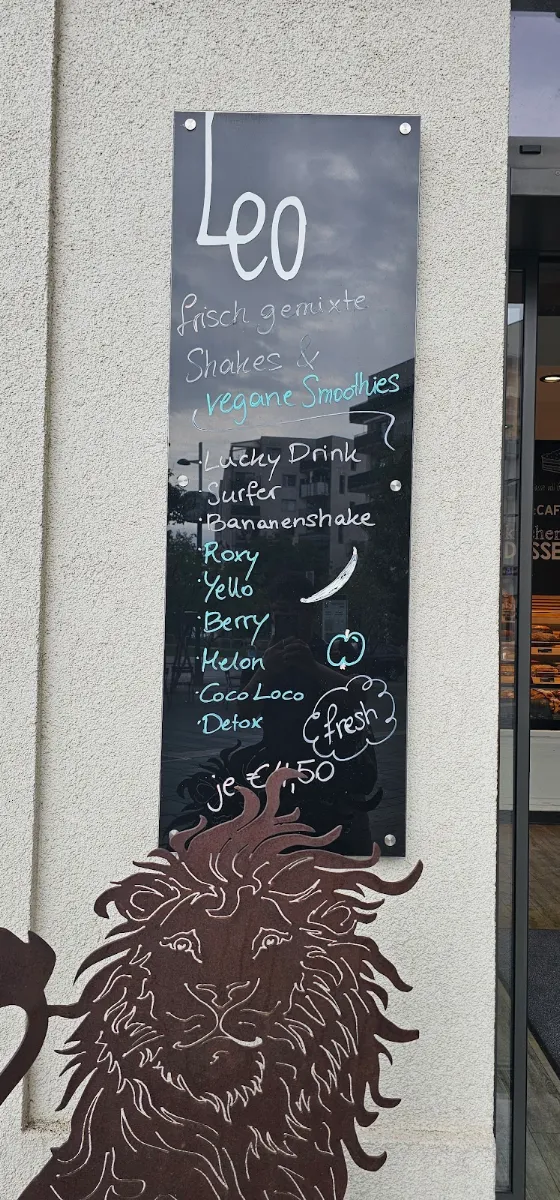 Leo
frisch gemixte
Shakes &
vegane Smoothies
· Lucky Drink
· Surfer
· Bananenshake
· Roxy
· Yello
· Berry
· Melon
· Coco Loco
· Detox
fresh
je €4,50